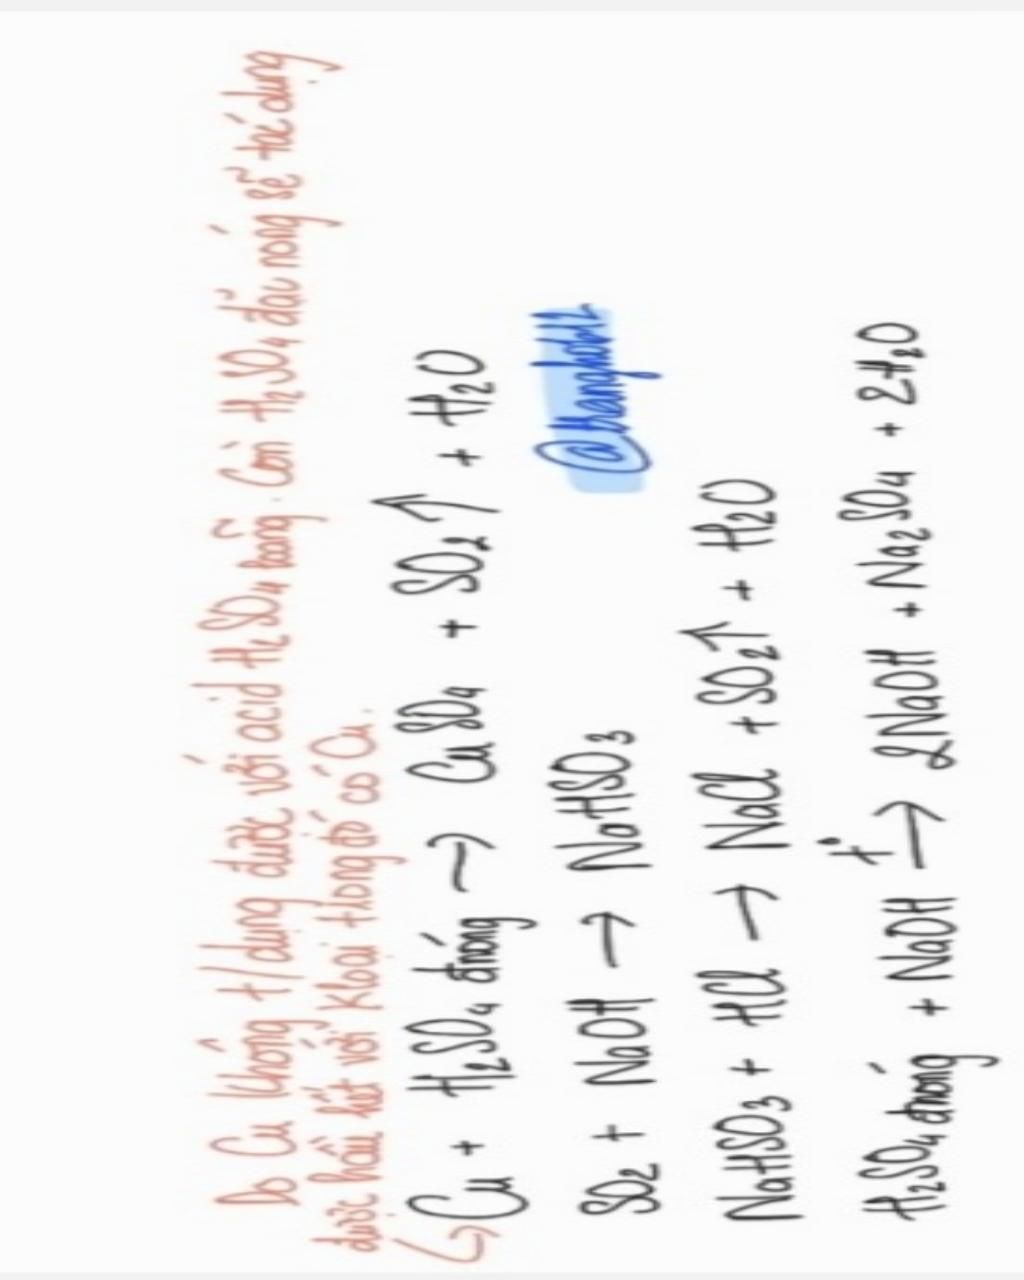 Do Cu không t/dụng được với acid H₂SO₄ loãng. Còn H₂SO₄ đặc nóng sẽ tác dụng
được hầu hết với kloại trong đó có Cu.
↳ Cu + H₂SO₄ đnóng → CuSO₄ + SO₂↑ + H₂O
@thanghoh12
SO₂ + NaOH → NaHSO₃
NaHSO₃ + HCl → NaCl + SO₂↑ + H₂O
H₂SO₄ đnóng + NaOH t° → 2NaOH + Na₂SO₄ + 2H₂O